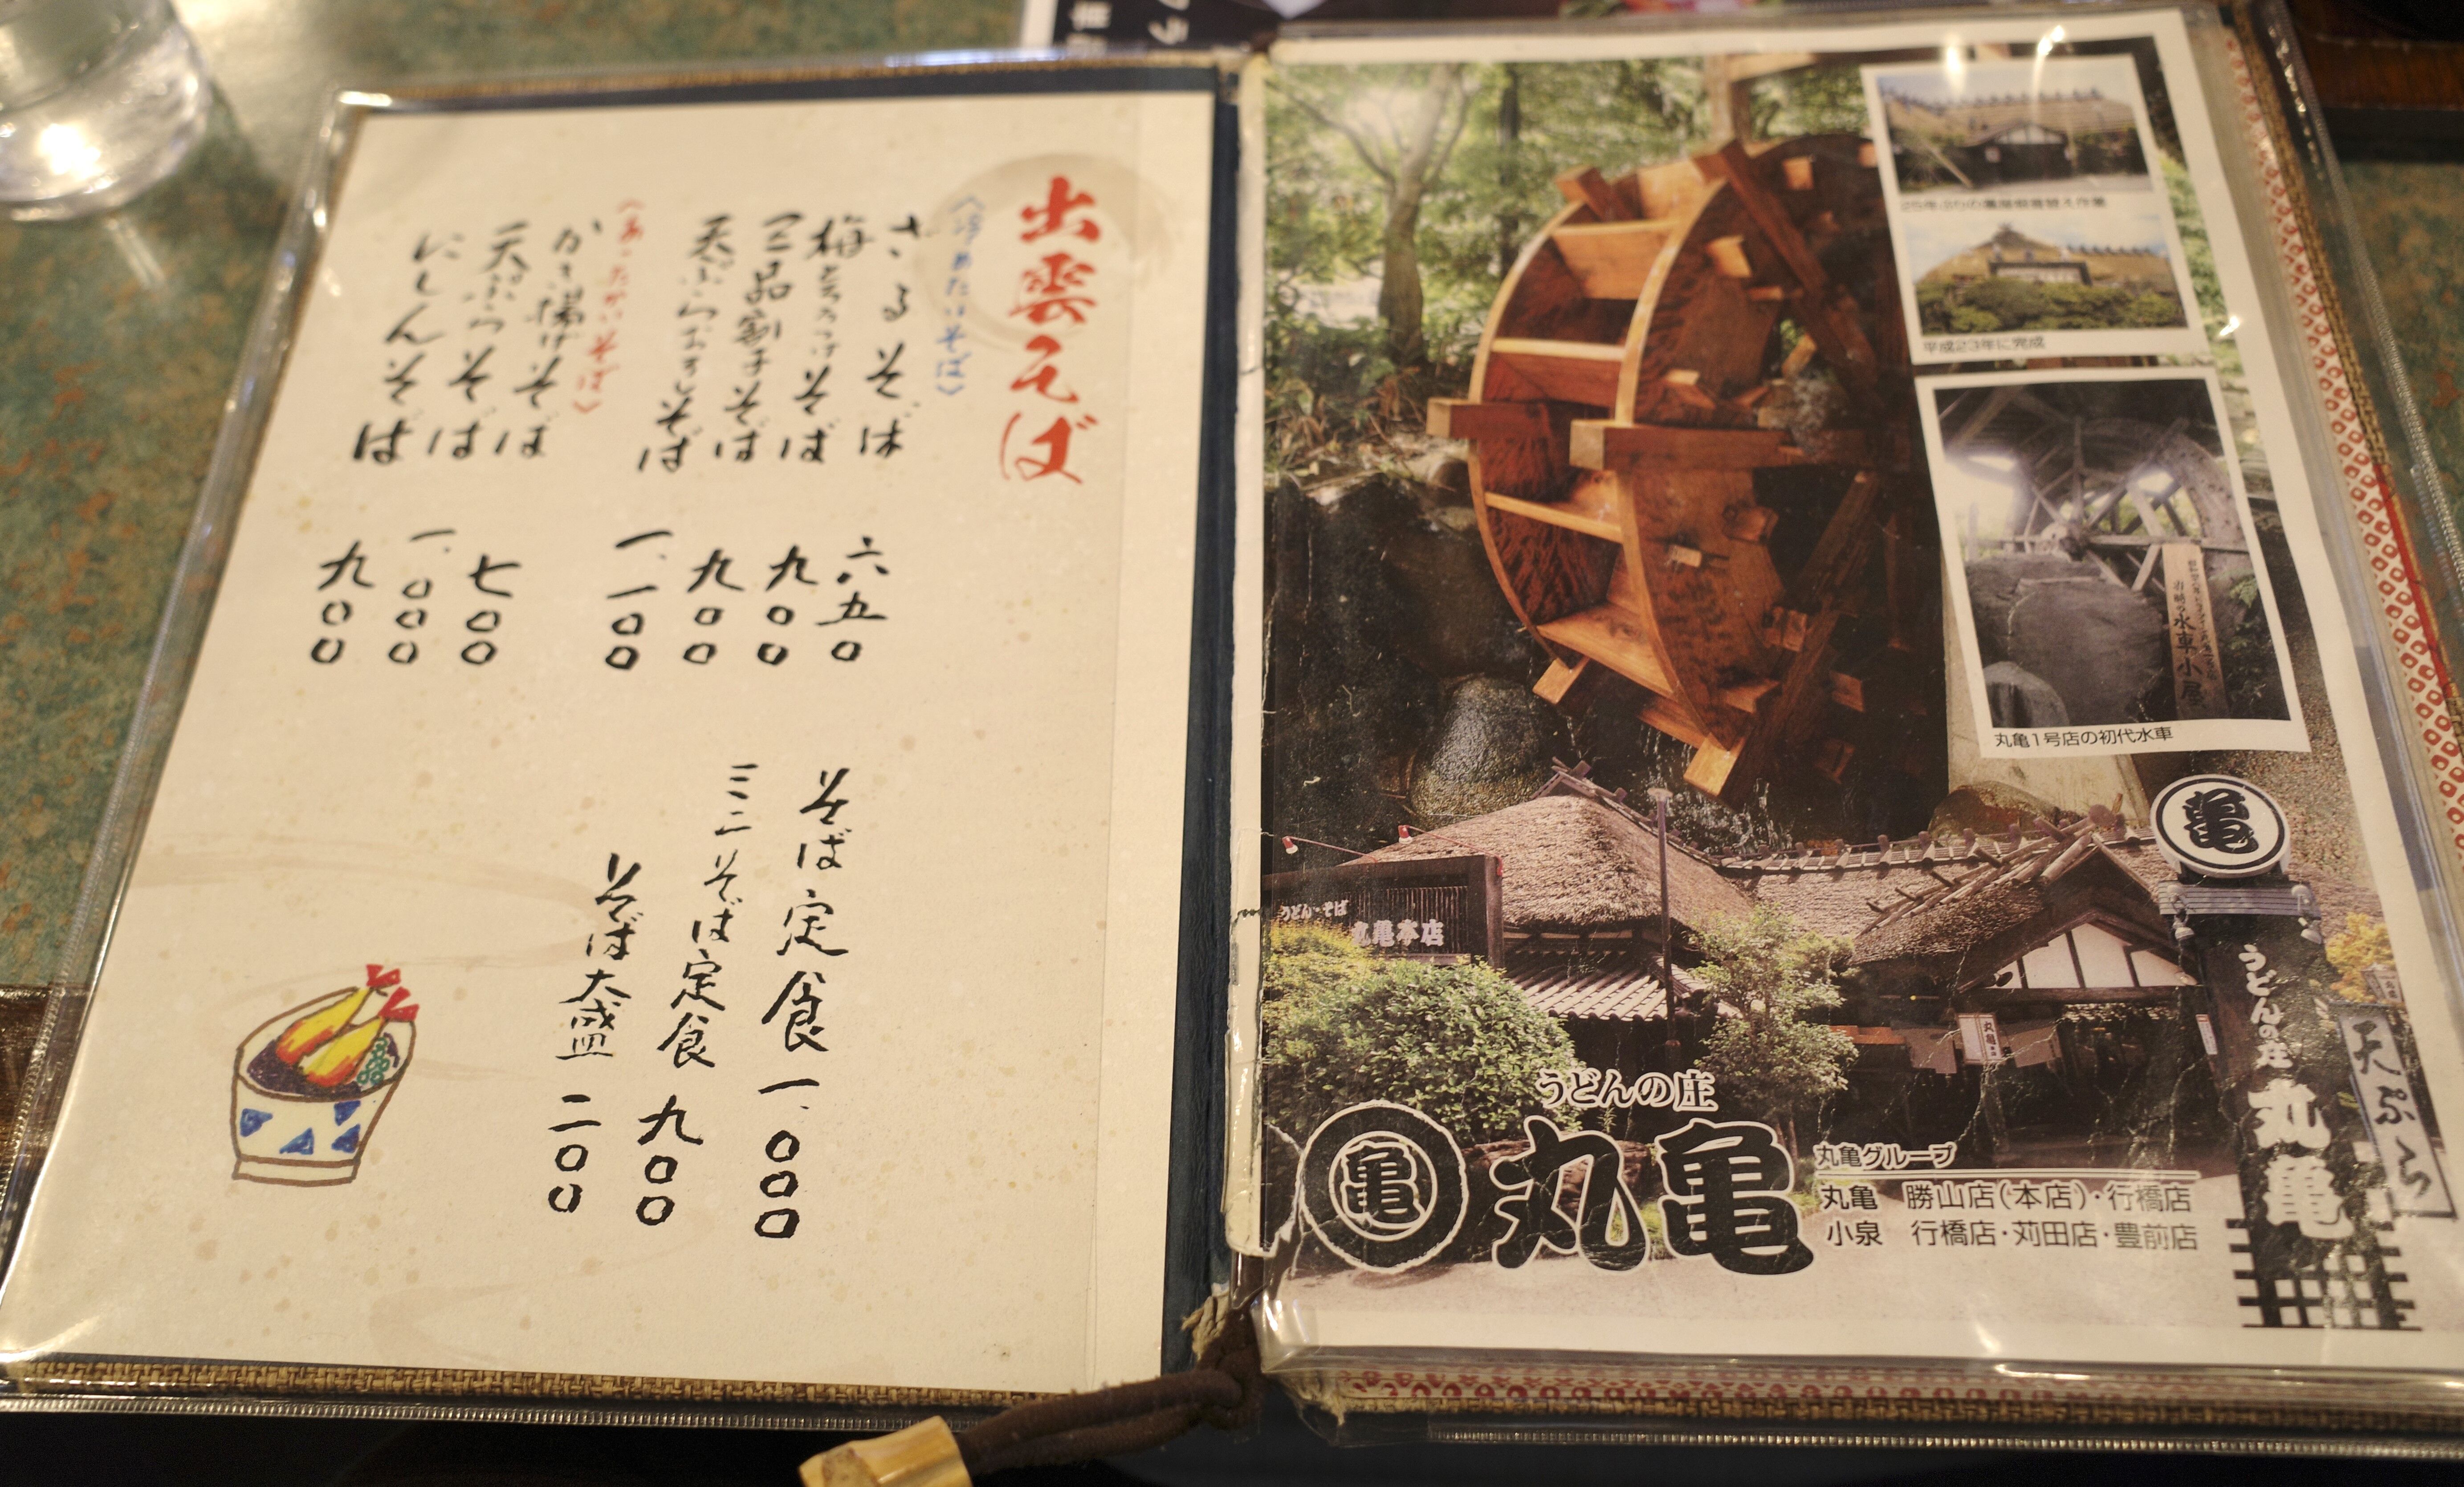 出雲そば
〈冷めたいそば〉
ざるそば 六五〇
梅とろろつけそば 九〇〇
三品割子そば 九〇〇
天ぷらおろしそば 一、一〇〇
〈あったかいそば〉
かき揚げそば 七〇〇
天ぷらそば 一、〇〇〇
にしんそば 九〇〇
そば定食 一、〇〇〇
ミニそば定食 九〇〇
そば大盛 二〇〇
平成23年に完成
水車小屋
丸亀1号店の初代水車
亀
うどん・そば
丸亀本店
うどんの庄
丸亀
天ぷら
うどんの庄
亀
丸亀
丸亀グループ
丸亀 勝山店(本店)・行橋店
小泉 行橋店・苅田店・豊前店